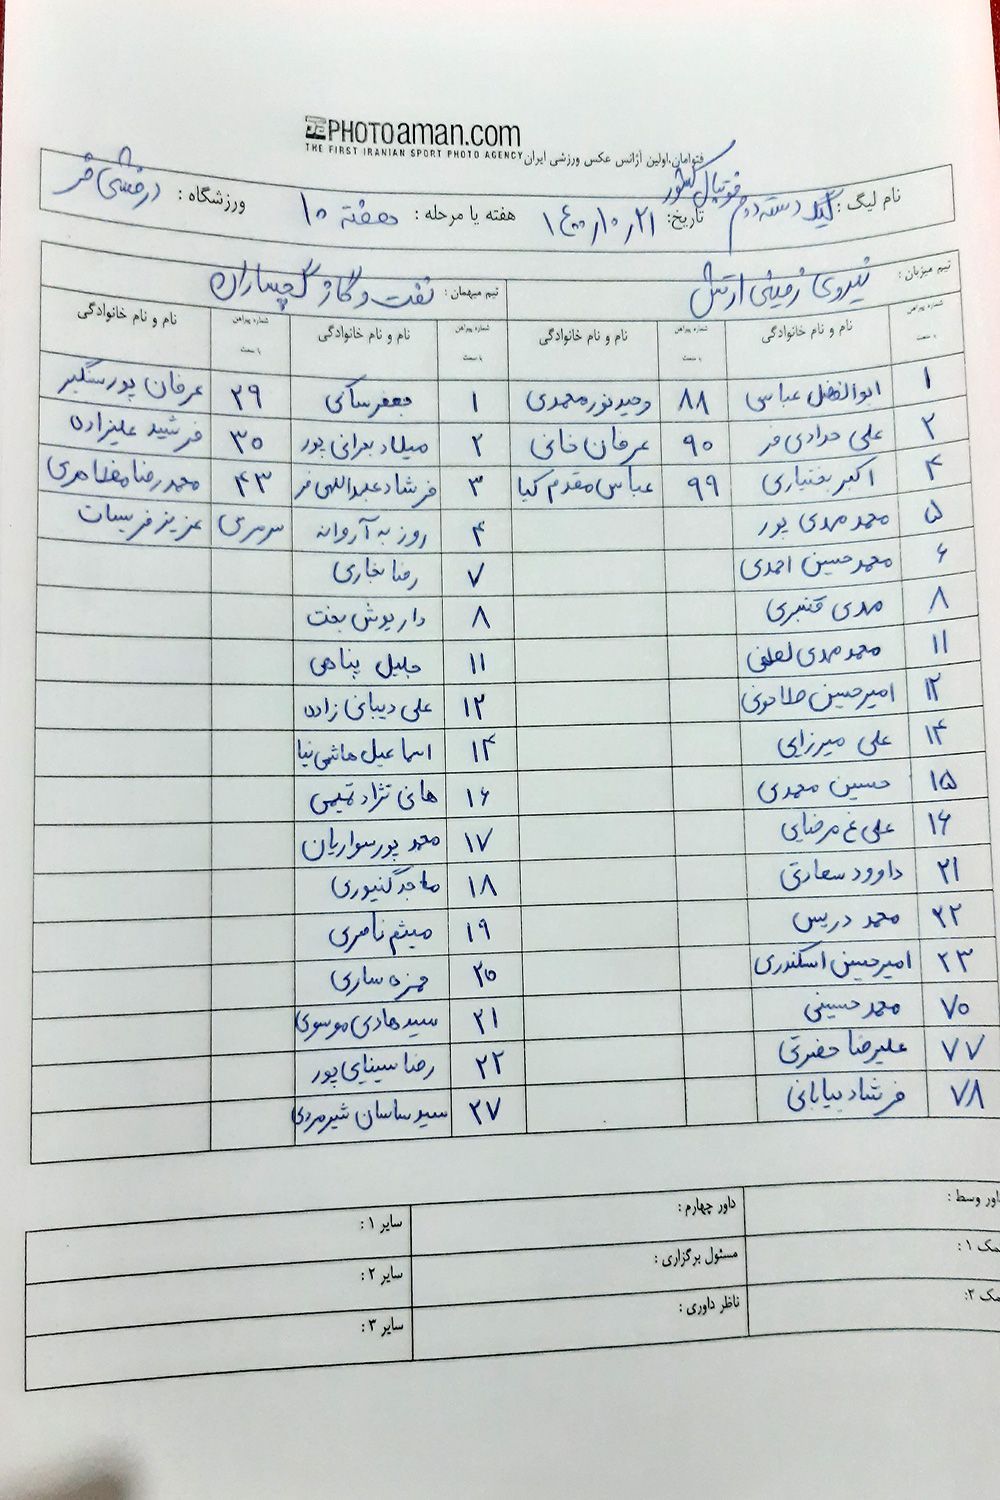 PHOTOaman.com
THE FIRST IRANIAN SPORT PHOTO AGENCY
فتوامان،اولین آژانس عکس ورزشی ایران
نام لیگ : لیگ دسته دوم فوتبال کشور تاریخ: ۱۴۰۰/۱۰/۲۱ هفته یا مرحله : هفته ۱۰ ورزشگاه : درفشی فر
تیم میزبان : نیروی زمینی ارتش تیم میهمان : نفت و گاز گچساران
شماره پیراهن یا سمت نام و نام خانوادگی شماره پیراهن یا سمت نام و نام خانوادگی شماره پیراهن یا سمت نام و نام خانوادگی شماره پیراهن یا سمت نام و نام خانوادگی
۱ ابوالفضل عباسی ۸۸ وحید نورمحمدی ۱ جعفر ساکی ۲۹ عرفان پورسنگبر
۲ علی مرادی فر ۹۰ عرفان خانی ۲ میلاد بحرانی پور ۳۰ فرشید علیزاده
۴ اکبر بختیاری ۹۹ عباس مقدم کیا ۳ فرشاد عبداللهی فر ۴۳ محمدرضا مظاهری
۵ محمد مهدی پور ۴ روزبه آروانه سرمربی عزیز فریسات
۶ محمدحسین احمدی ۷ رضا بخاری
۸ مهدی قنبری ۸ داریوش بخت
۱۱ محمد مهدی لطفی ۱۱ جلیل پناهی
۱۲ امیرحسین ۱۲ علی دیبانی زاده
۱۴ علی میرزایی ۱۴ اسماعیل هاشمی نیا
۱۵ حسین محمدی ۱۶ هانی نژاد تمیمی
۱۶ علی غ مرضایی ۱۷ محمد پور سواریان
۲۱ داوود سعادتی ۱۸ ماجد گنیوری
۲۲ محمد دریس ۱۹ میثم ناصری
۲۳ امیرحسین اسکندری ۲۰ حمزه ساری
۷۰ محمد حسینی ۲۱ سید هادی موسوی
۷۷ علیرضا حضرتی ۲۲ رضا سینایی پور
۷۸ فرشاد بیابانی ۲۷ سید ساسان شیرمردی
داور وسط : داور چهارم : سایر ۱ :
کمک ۱ : مسئول برگزاری : سایر ۲ :
کمک ۲: ناظر داوری : سایر ۳ :